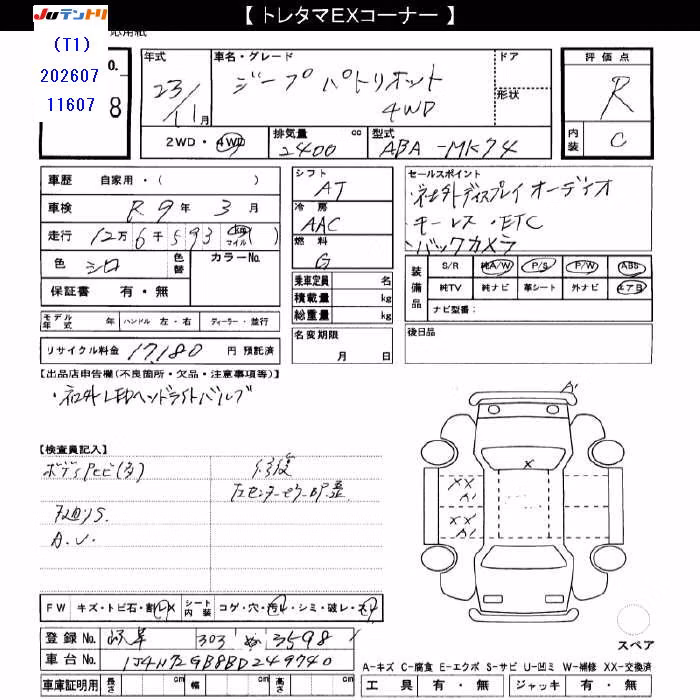 【 トレタマEXコーナー 】
Juテントリ
(T1)
202607
11607
応用紙
o.
8
年式
23/11月
車名・グレード
ジープ パトリオット
4WD
ドア
形状
評価点
R
内装
C
2WD・4WD
排気量 2400 cc
型式 ABA-MK74
車歴 自家用・( )
車検 R9年 3月
走行 12万6千593 (マイル)
色 シロ
色替
カラーNo.
保証書 有・無
シフト
AT
冷房
AAC
燃料
G
乗車定員 名
積載量 kg
総重量 kg
セールスポイント
・社外ディスプレイオーディオ
・キーレス・ETC
・バックカメラ
装備品
S/R 純A/W P/S P/W ABS
純TV 純ナビ 革シート 外ナビ エアB
ナビ型番：
モデル年式 年 ハンドル 左・右 ディーラー・並行
リサイクル料金 17,180 円 預託済
名変期限
月 日
後日品
【出品店申告欄(不良箇所・欠品・注意事項等)】
・社外LEDヘッドライトバルブ
【検査員記入】
修復
A.U.
A'
X
XX
A1
XX
A1
FW キズ・トビ石・割レX
シート内装 コゲ・穴・汚レ・シミ・破レ・スレ
登録No. 岐阜 303 ぬ 3598
車台No. 1J4N72GB8BD249740
車庫証明用 長さ cm 幅 cm 高さ cm
スペア
A-キズ C-腐食 E-エクボ S-サビ U-凹ミ W-補修 XX-交換済
工具 有・無 ジャッキ 有・無